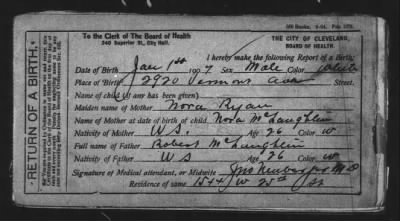 500 Books, 9-04.
To the Clerk of The Board of Health
THE CITY OF CLEVELAND,
240 Superior St., City Hall.
BOARD OF HEALTH.
I hereby make the following Report of a Birth:
Date of Birth Jan 1st 1907 Sex Male Color White
Place of Birth 2920 Vermont Ave Street.
Name of child (if any has been given)
Maiden name of Mother Nora Ryan
Name of Mother at date of birth of child Nora McLaughlin
Nativity of Mother U.S. Age 26 Color W
Full name of Father Robert McLaughlin
Nativity of Father U S Age 26 Color W
Signature of Medical attendant, or Midwife Jno MD
Residence of same W 25th St
RETURN OF A BIRTH.